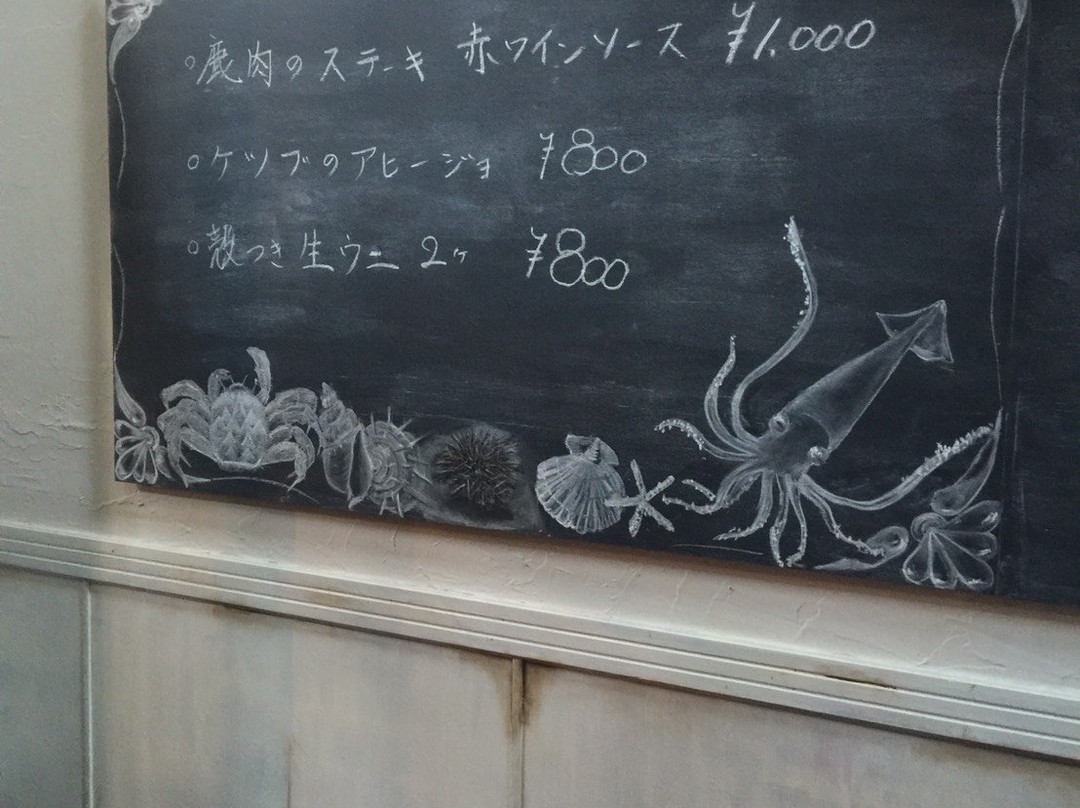 ○鹿肉のステーキ 赤ワインソース ¥1.000
○ケツブのアヒージョ ¥800
○殻つき生ウニ 2ヶ ¥800